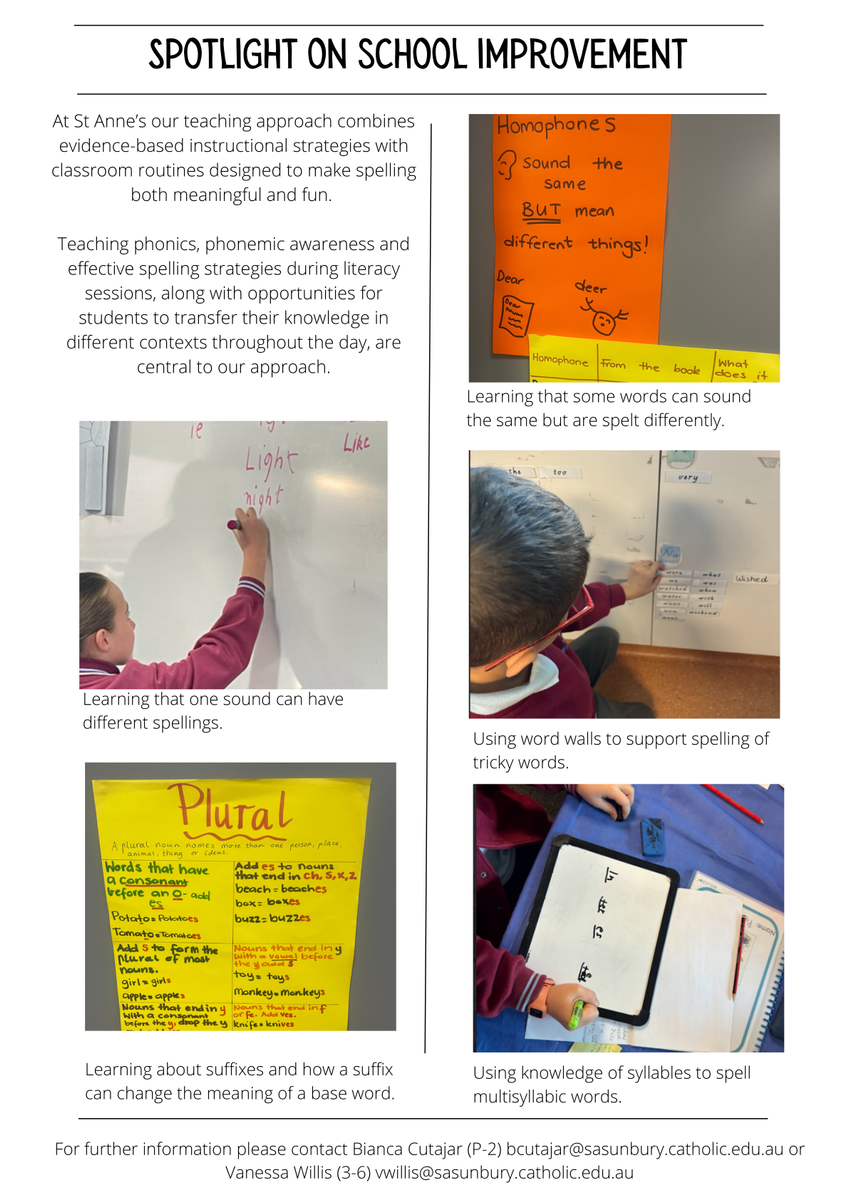 SPOTLIGHT ON SCHOOL IMPROVEMENT
At St Anne's our teaching approach combines
evidence-based instructional strategies with
classroom routines designed to make spelling
both meaningful and fun.
Teaching phonics, phonemic awareness and
effective spelling strategies during literacy
sessions, along with opportunities for
students to transfer their knowledge in
different contexts throughout the day, are
central to our approach.
ie
Like
Light
night
Learning that one sound can have
different spellings.
Plural
A plural noun names more than one person, place,
animal, thing or ideas.
Words that have
a consonant
before an o- add
es
Potato = Potatoes
Tomato = Tomatoes
Add es to nouns
that end in ch, s, x, z
beach = beaches
box = boxes
buzz = buzzes
Add s to form the
plural of most
nouns.
girl = girls
apple = apples
Nouns that end in y
with a vowel before
the y add s
toy = toys
monkey = monkeys
Nouns that end in y
with a consonant
before the y, drop the y
Nouns that end in f
or fe. Add ves.
knife = knives
Learning about suffixes and how a suffix
can change the meaning of a base word.
Homophones
Sound the
same
BUT mean
different things!
Dear
deer
Dear
mum
Homophone
From the book
What
does it
Learning that some words can sound
the same but are spelt differently.
the
too
very
Wished
were what
was
watched when
water with
want will
weekend
went
Using word walls to support spelling of
tricky words.
Using knowledge of syllables to spell
multisyllabic words.
For further information please contact Bianca Cutajar (P-2) bcutajar@sasunbury.catholic.edu.au or
Vanessa Willis (3-6) vwillis@sasunbury.catholic.edu.au